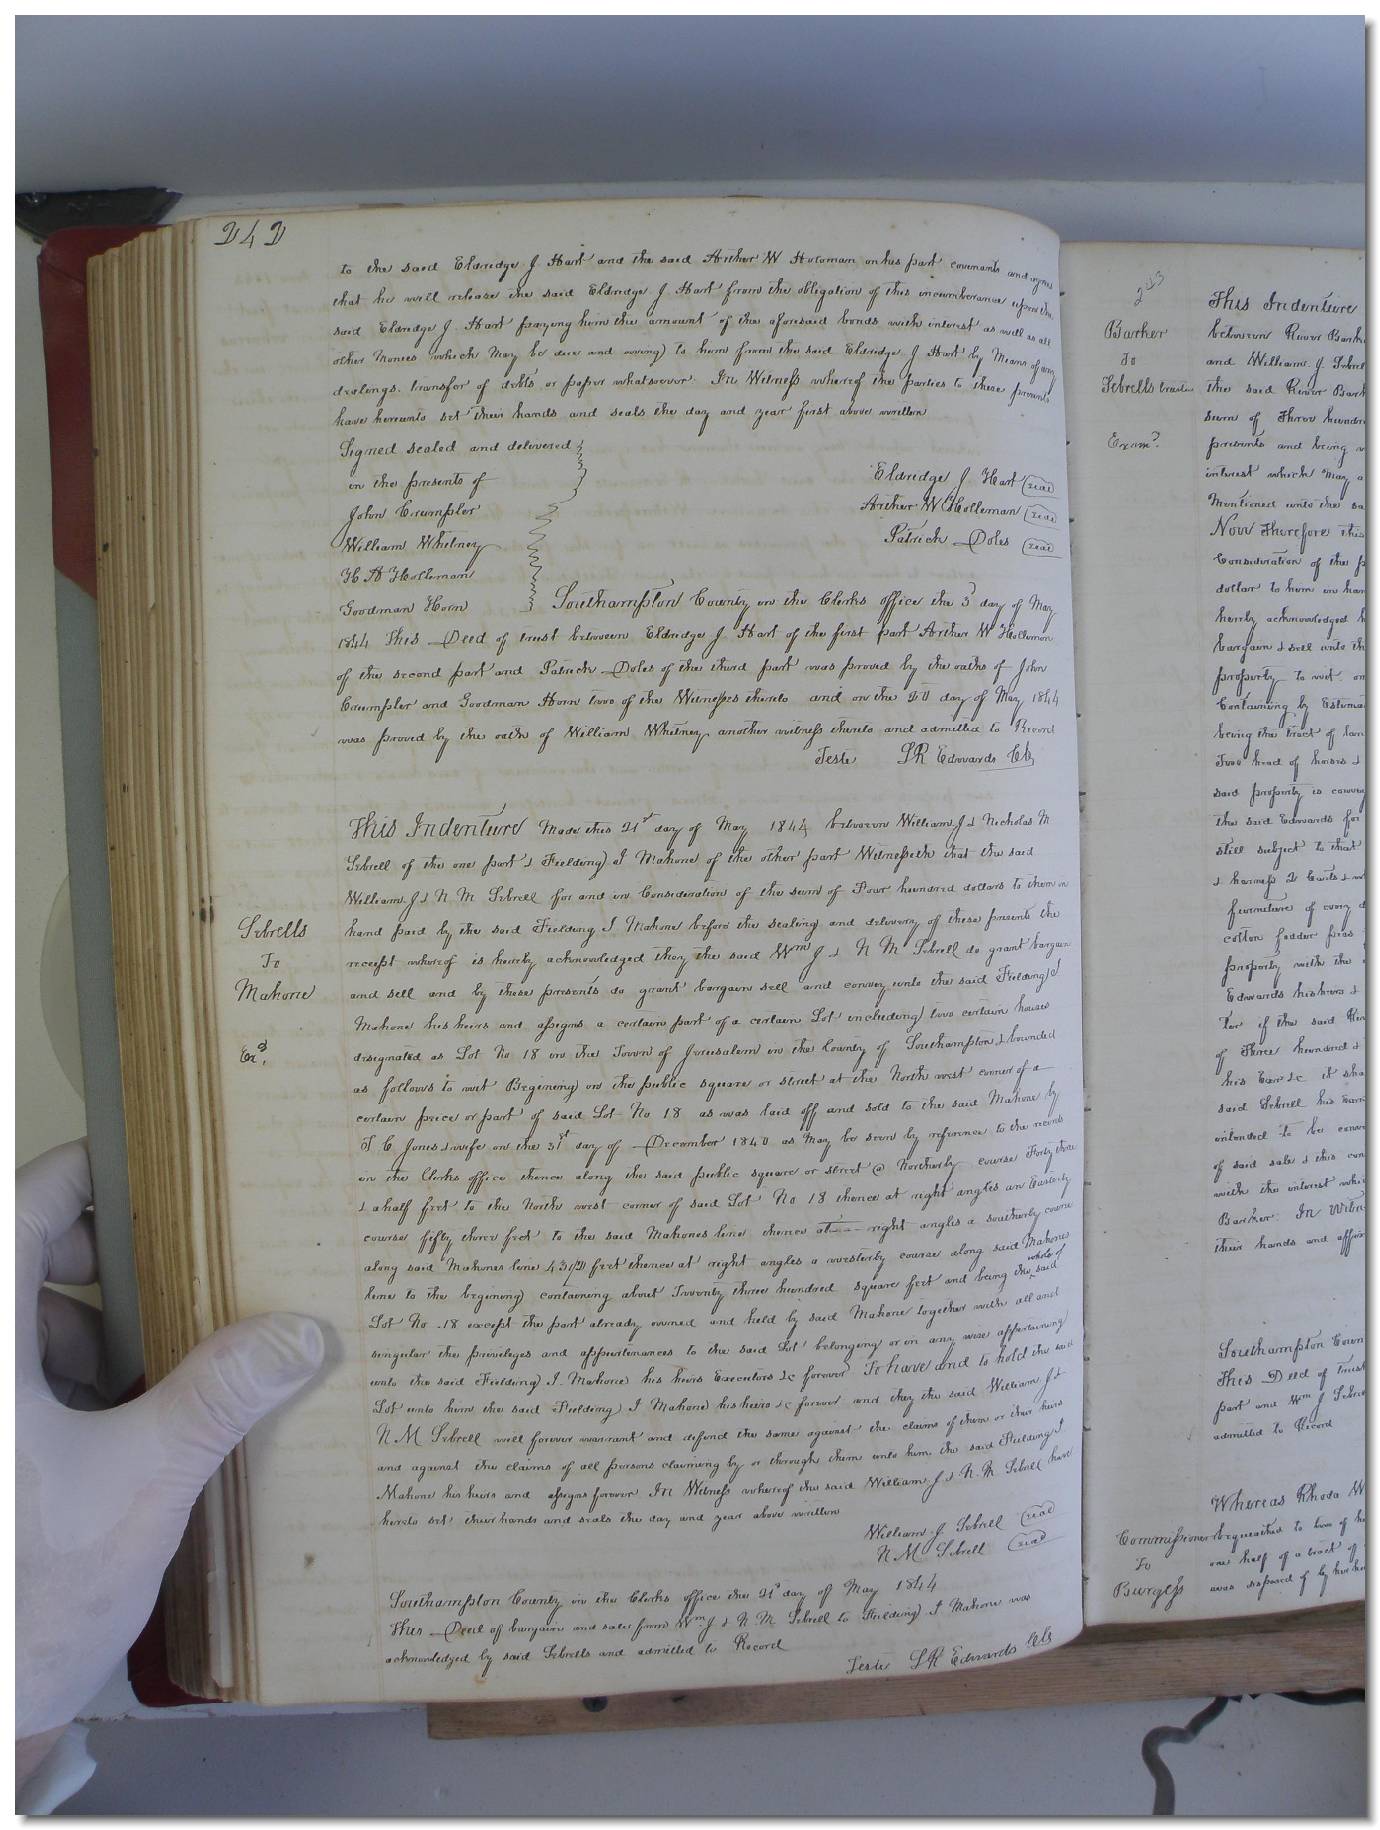 242
to the said Eldridge J. Hart and the said Arther W Holoman on his part covenants and agrees
that he will release the said Eldridge J. Hart from the obligation of this incumberance upon the
said Eldridge J. Hart paying him the amount of the aforesaid bonds with interest as well as all
other Monies which May be due and owing to him from the said Eldridge J Hart by Means of any
dealings. transfer of debts or paper whatsoever. In Witness whereof the parties to these presents
have hereunto set their hands and seals the day and year first above written
Signed sealed and delivered
in the presents of
Eldridge J. Hart seal
John Crumpler
Arther W Holleman seal
William Whitney
Patrick Doles seal
H A Holleman
Goodman Horn
Southampton County in the Clerks office the 3 day of May
1844 This Deed of trust between Eldridge J. Hart of the first part Arther W Holleman
of the second part and Patrick Doles of the third part was proved by the oaths of John
Crumpler and Goodman Horn two of the Witnesses thereto and on the 20 day of May 1844
was proved by the oath of William Whitney another witness thereto and admitted to Record
Teste LR Edwards Clk
Sebrells
To
Mahone
Ex.
This Indenture Made this 21st day of May 1844 between William J & Nicholas M
Sebrell of the one part & Fielding J Mahone of the other part Witnesseth that the said
William J & N M Sebrell for and in Consideration of the sum of Four hundred dollars to them in
hand paid by the said Fielding J. Mahone before the sealing and delivery of these presents the
receipt whereof is hereby acknowledged they the said Wm J & N M Sebrell do grant bargain
and sell and by these presents do grant bargain sell and convey unto the said Fielding J
Mahone his heirs and assigns a certain part of a certain Lot including two certain houses
designated as Lot No 18 in the Town of Jerusalem in the County of Southampton & bounded
as follows to wit Begening on the public square or street at the North west corner of a
certain peice or part of said Lot No 18 as was laid off and sold to the said Mahone by
T C Jones & wife on the 31st day of December 1840 as May be seen by reference to the records
in the Clerks office thence along the said public square or street @ Northerly course Forty three
& a half feet to the North west corner of said Lot No 18 thence at right angles an Easterly
course fifty three feet to the said Mahones line thence at right angles a southerly course
along said Mahones line 43 1/2 feet thence at right angles a westerly course along said Mahone
line to the begening containing about Twenty three hundred square feet and being the whole of said
Lot No 18 except the part already owned and held by said Mahone together with all and
singular the priviliges and appurtinances to the said Lot belonging or in any wise appertaining
unto the said Fielding J. Mahone his heirs Executors &c forever To have and to hold the said
Lot unto him the said Fielding J Mahone his heirs &c forever and they the said William J &
N. M. Sebrell will forever warrant and defend the same against the claims of them or their heirs
and against the claims of all persons claiming by or through them unto him the said Fielding J
Mahone his heirs and assigns forever In Witness whereof the said William J & N. M. Sebrell have
hereto set their hands and seals the day and year above written
William J. Sebrell seal
N. M. Sebrell seal
Southampton County in the Clerks office the 21st day of May 1844
This Deed of bargain and sale from Wm J & N. M. Sebrell to Fielding J. Mahone was
acknowledged by said Sebrells and admitted to Record
Teste LR Edwards Clk
243
Barker
To
Sebrells trustee
Exam.
This Indenture
between River Bark
and William J. Sebrel
the said River Bark
sum of Three hundre
presents and being
interest which May a
Mentioned unto the sa
Now Therefore this
Consideration of the p
dollar to him in han
hereby acknowledged h
bargain & sell unto th
property to wit on
Containing by Estima
being the tract of lan
Two head of horses &
said property is convey
the said Edwards for
still subject to that
& harness 2 Carts &
furniture of every d
cotton fodder peas
property with the
Edwards his heirs &
tor if the said Riv
of Three hundred &
his Exor &c it sha
said Sebrell his Exor
intended to be conve
of said sale & this con
with the interest whi
Barker. In Witne
their hands and affix
Southampton Coun
This Deed of trust
part and Wm J Sebre
admitted to Record
Commissioner
To
Burgess
Whereas Rhoda W
bequeathed to two of h
one half of a tract of
was disposed of by her